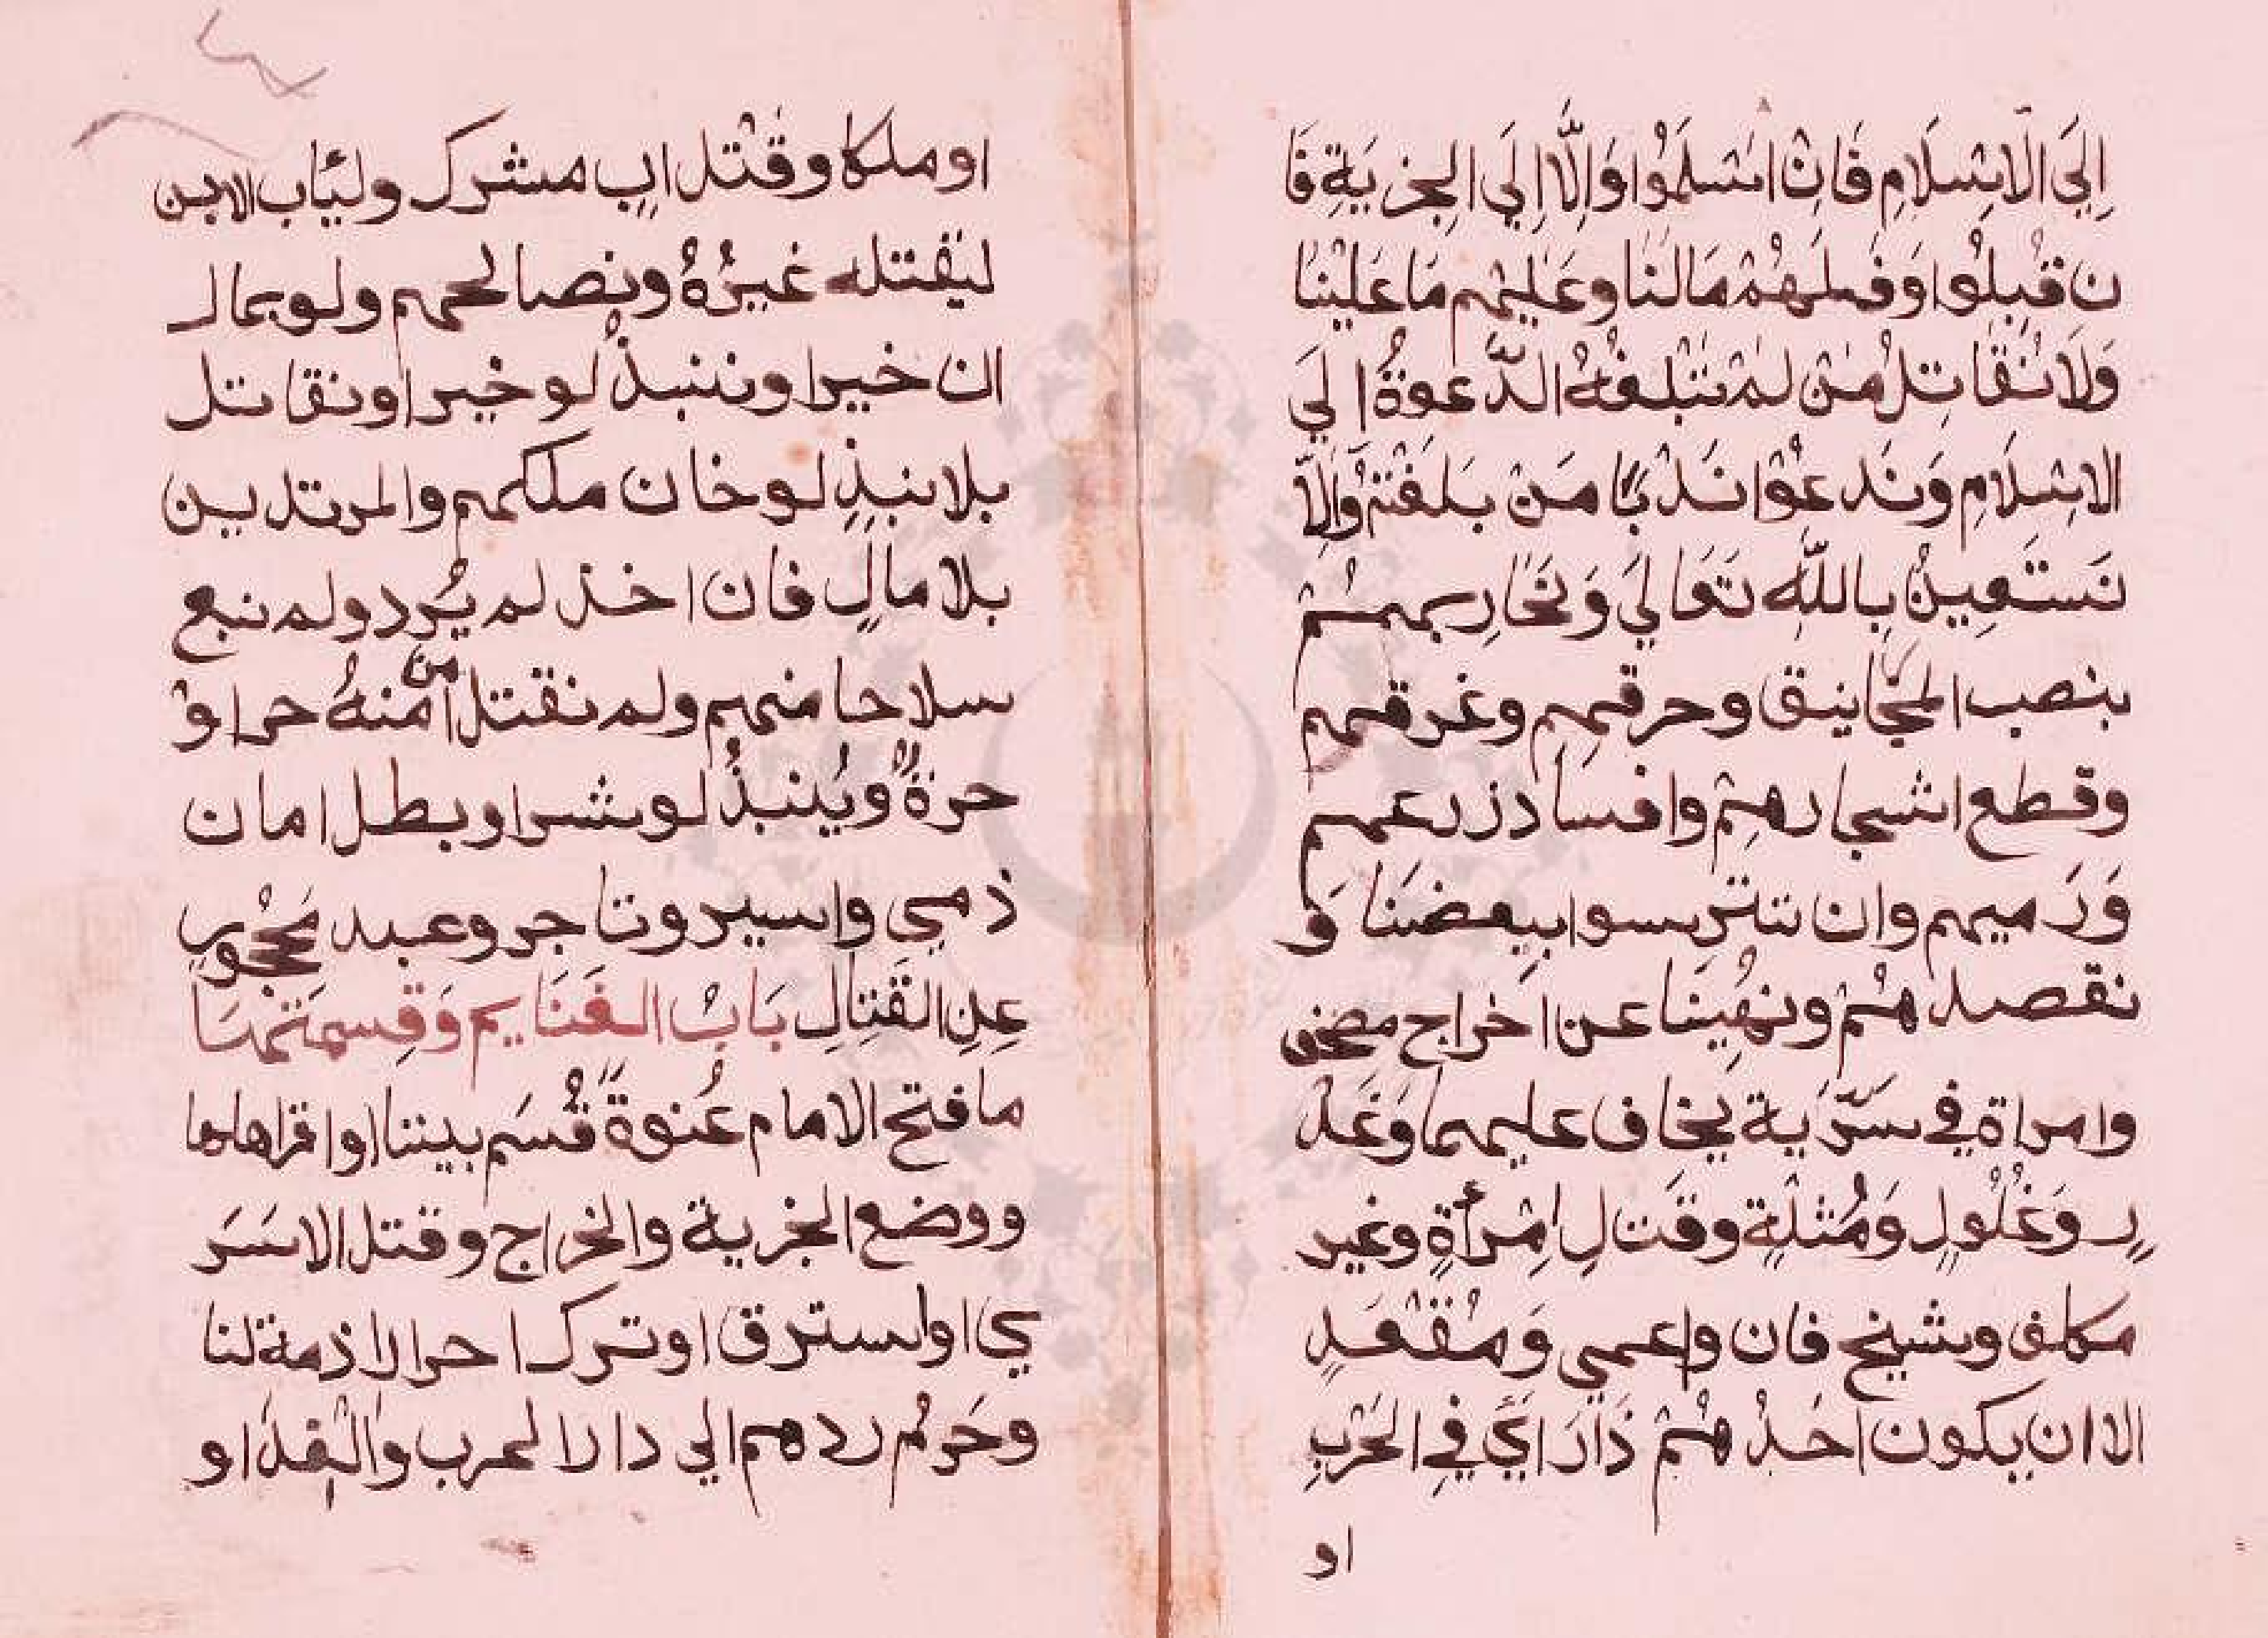 إِلَي الْاِسْلَامِ فَاِنْ اَسْلَمُوْا وَاِلَّا اِلَي الْجِزْيَةِ فَا
ن قَبِلُوْا وَفَلَهُمْ مَالَنَا وَعَلَيْهِم مَا عَلَيْنَا
وَلَا نُقَاتِلُ مَنْ لَمْ تَبْلُغْهُ الدَّعوةُ اِلَي
الاِسْلَامِ وَنَدعُوْا نَدْبًا مَنْ بَلَغَتْهُ وَاِلَّا
نَسْتَعِيْنُ بِاللّٰهِ تَعَالَي وَنُحَارِبهمْ
بنصب المجَانيق وحرقهم وغرقهم
وقطع اشجارهِمْ وافساد زرعهم
وَرَميهم وان تترسوا ببعضنَا وَ
نقصدهمْ ونُهِيْنَا عن اخراج مصحف
وامراة في سَرّيَة يخاف عليهما وَغَدْ
رٍ وَغُلُوْلٍ وَمُثْلَةٍ وقَتلِ اِمْرأَةٍ وغير
مكلف وشيخ فان واعمي وَمُقْعَدٍ
الا ان يكون اَحَدُهُمْ ذَارَايٍ فِي الحَرْبِ
او
او ملكا وقَتْل ابٍ مشرك وليَاب الابن
ليَقتله غيرُهُ ونصالحهم ولو بمال
ان خيرا وننبذُ لو خيرا ونقاتل
بلا نبذٍ لو خان ملكهم والمرتدين
بلا مالٍ فان اخذ لم يُرد ولم نبع
سلاحا منهم ولم نقتل من اَمَّنهُ حر او
حرةٌ ويُنبذُ لو شرا وبطل امان
ذمي واسير وتاجر وعبد مَحْجُورٍ
عنِ القَتِالِ بَابُ الغَنَايم وَقِسمَتهَا
ما فتح الامام عُنوةً قُسَم بيننا او اقراهلها
ووضع الجزية والخراج وقتل الاسَرَ
ي او استرق او ترك احرارا ذمة لنا
وحَرُم ردهم الي دار الحرب والْفِدَا و